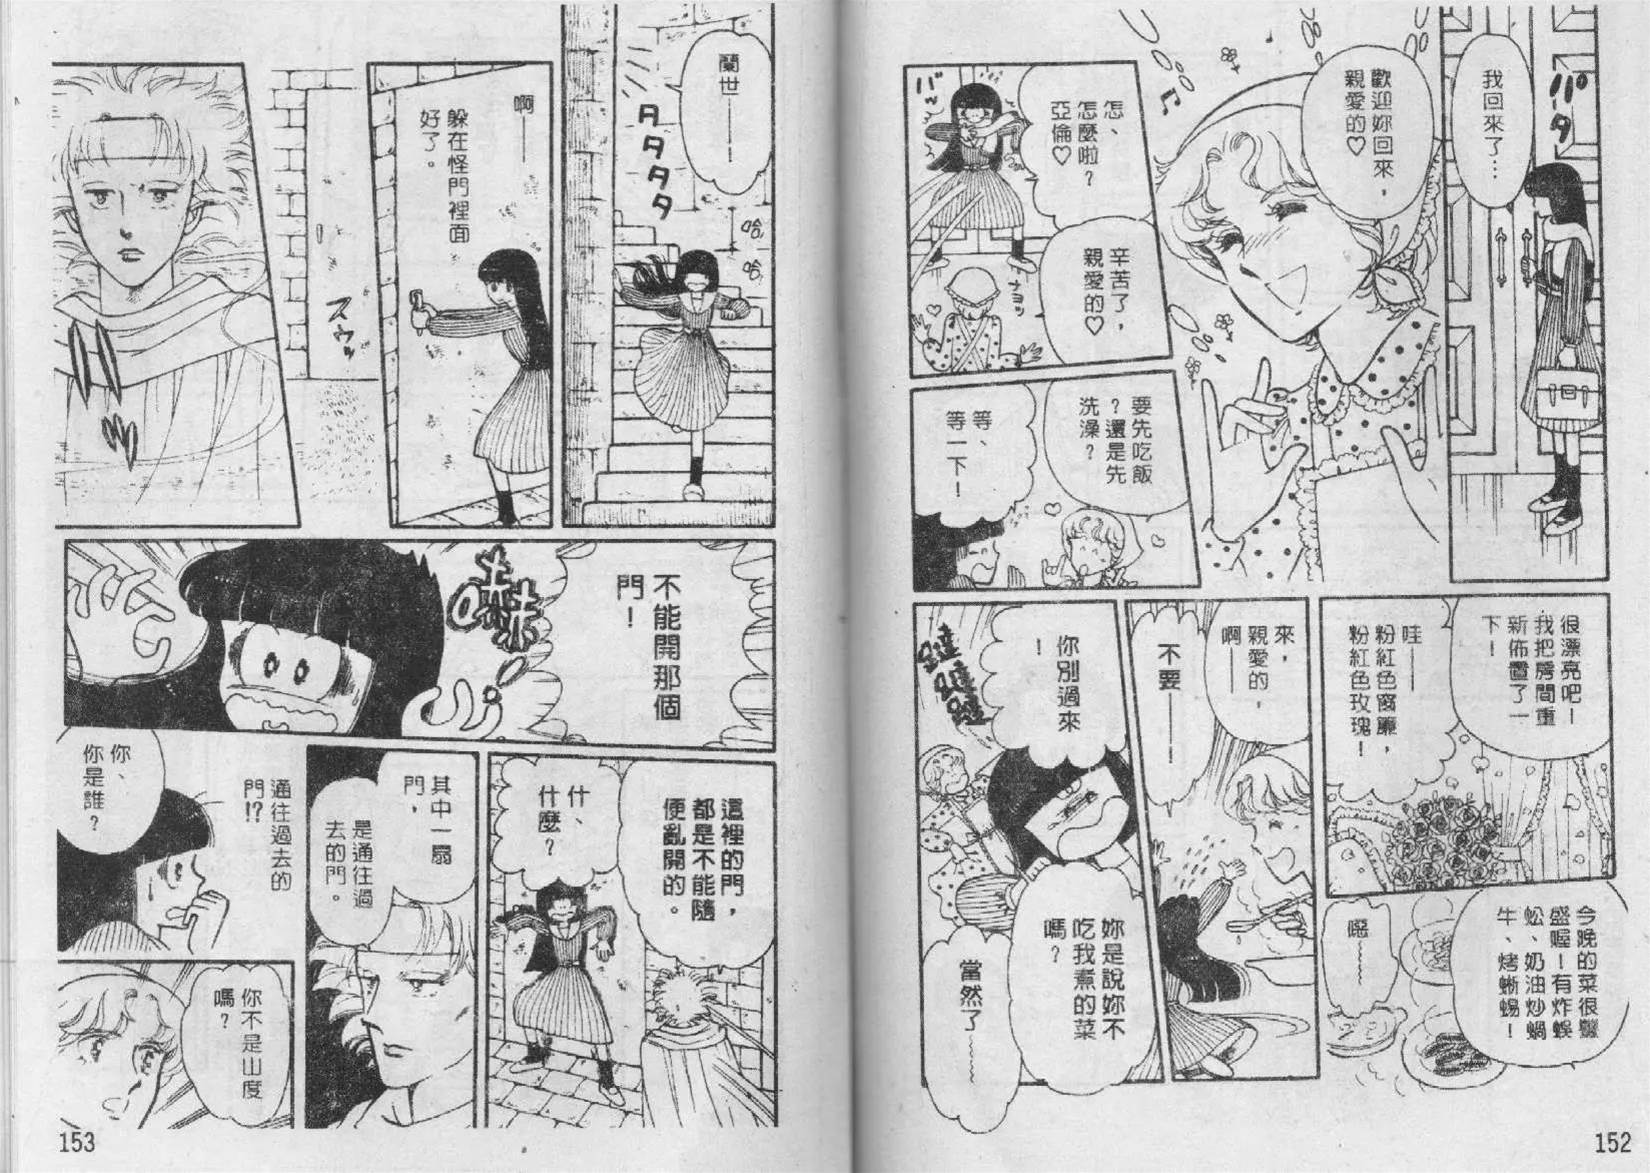 我回來了…
パタ
歡迎妳回來，
親愛的♡
怎、
怎麼啦？
亞倫♡
バッ
辛苦了，
親愛的♡
ナヨッ
要先吃飯
？還是先
洗澡？
等、
等一下！
很漂亮吧！
我把房間重
新佈置了一
下！
哇——
粉紅色窗簾，
粉紅色玫瑰！
今晚的菜很豐
盛喔！有炸蜈
蚣、奶油炒蝸
牛、烤蜥蜴！
噁~~~
來，
親愛的，
啊——
不要——！
你別過來
！
躂躂躂躂
妳是說妳不
吃我煮的菜
嗎？
當然了~~~
152
蘭世——！
タタタタ
哈、
哈、
啊——
躲在怪門裡面
好了。
スウッ
不能開那個
門！
這裡的門，
都是不能隨
便亂開的。
什、
什麼？
其中一扇
門，
是通往過
去的門。
通往過去的
門!?
你、
你是誰？
你不是山度
嗎？
153